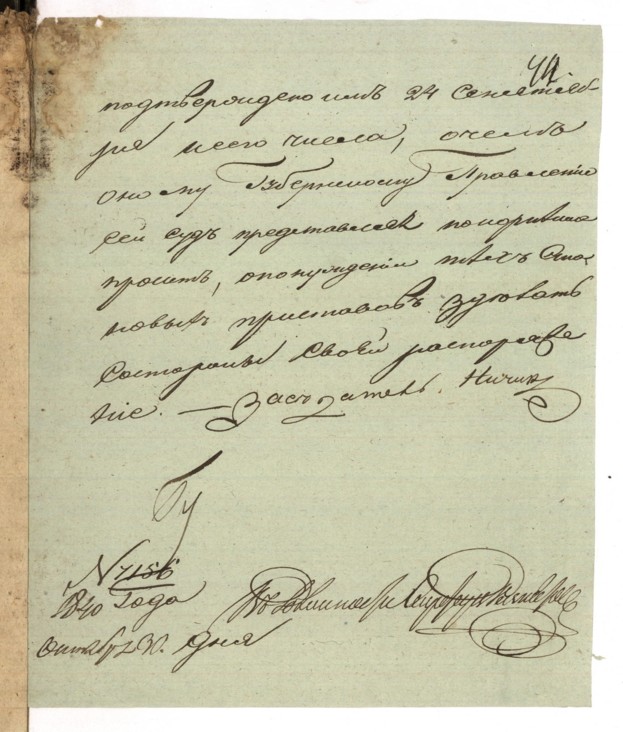 44
подтверждено имъ 24 Сентяб-
ря сего числа, о чемъ
оному Губернскому Правленію
сей судъ представляя покорнѣйше
проситъ, о понужденіи тѣхъ Ста-
новыхъ приставовъ здѣлать
со стороны своей распоряже
ніе. — Засѣдатель
N 7156
1840 года
Октября 30. дня